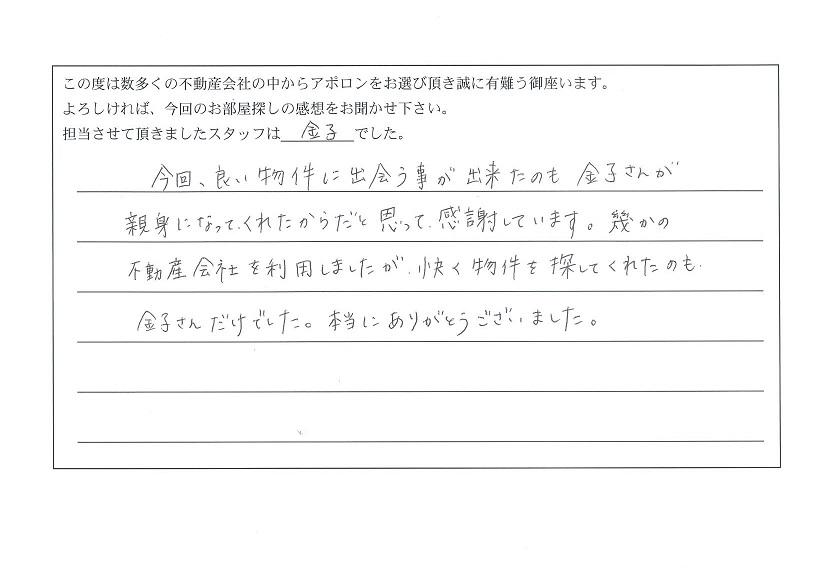 この度は数多くの不動産会社の中からアポロンをお選び頂き誠に有難う御座います。
よろしければ、今回のお部屋探しの感想をお聞かせ下さい。
担当させて頂きましたスタッフは金子でした。
今回、良い物件に出会う事が出来たのも金子さんが
親身になってくれたからだと思って、感謝しています。幾かの
不動産会社を利用しましたが、快く物件を探してくれたのも、
金子さんだけでした。本当にありがとうございました。